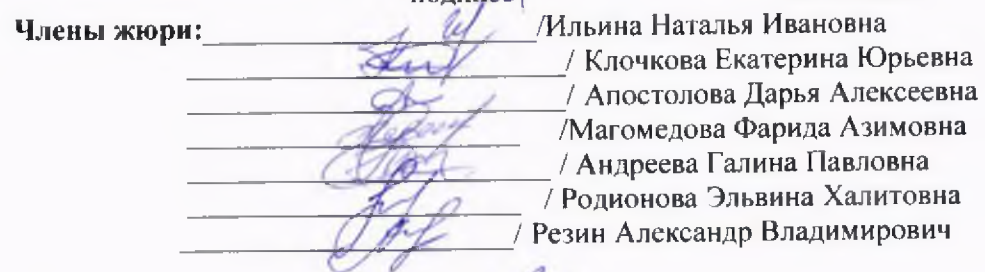 Члены жюри: /Ильина Наталья Ивановна
/ Клочкова Екатерина Юрьевна
/ Апостолова Дарья Алексеевна
/Магомедова Фарида Азимовна
/ Андреева Галина Павловна
/ Родионова Эльвина Халитовна
/ Резин Александр Владимирович